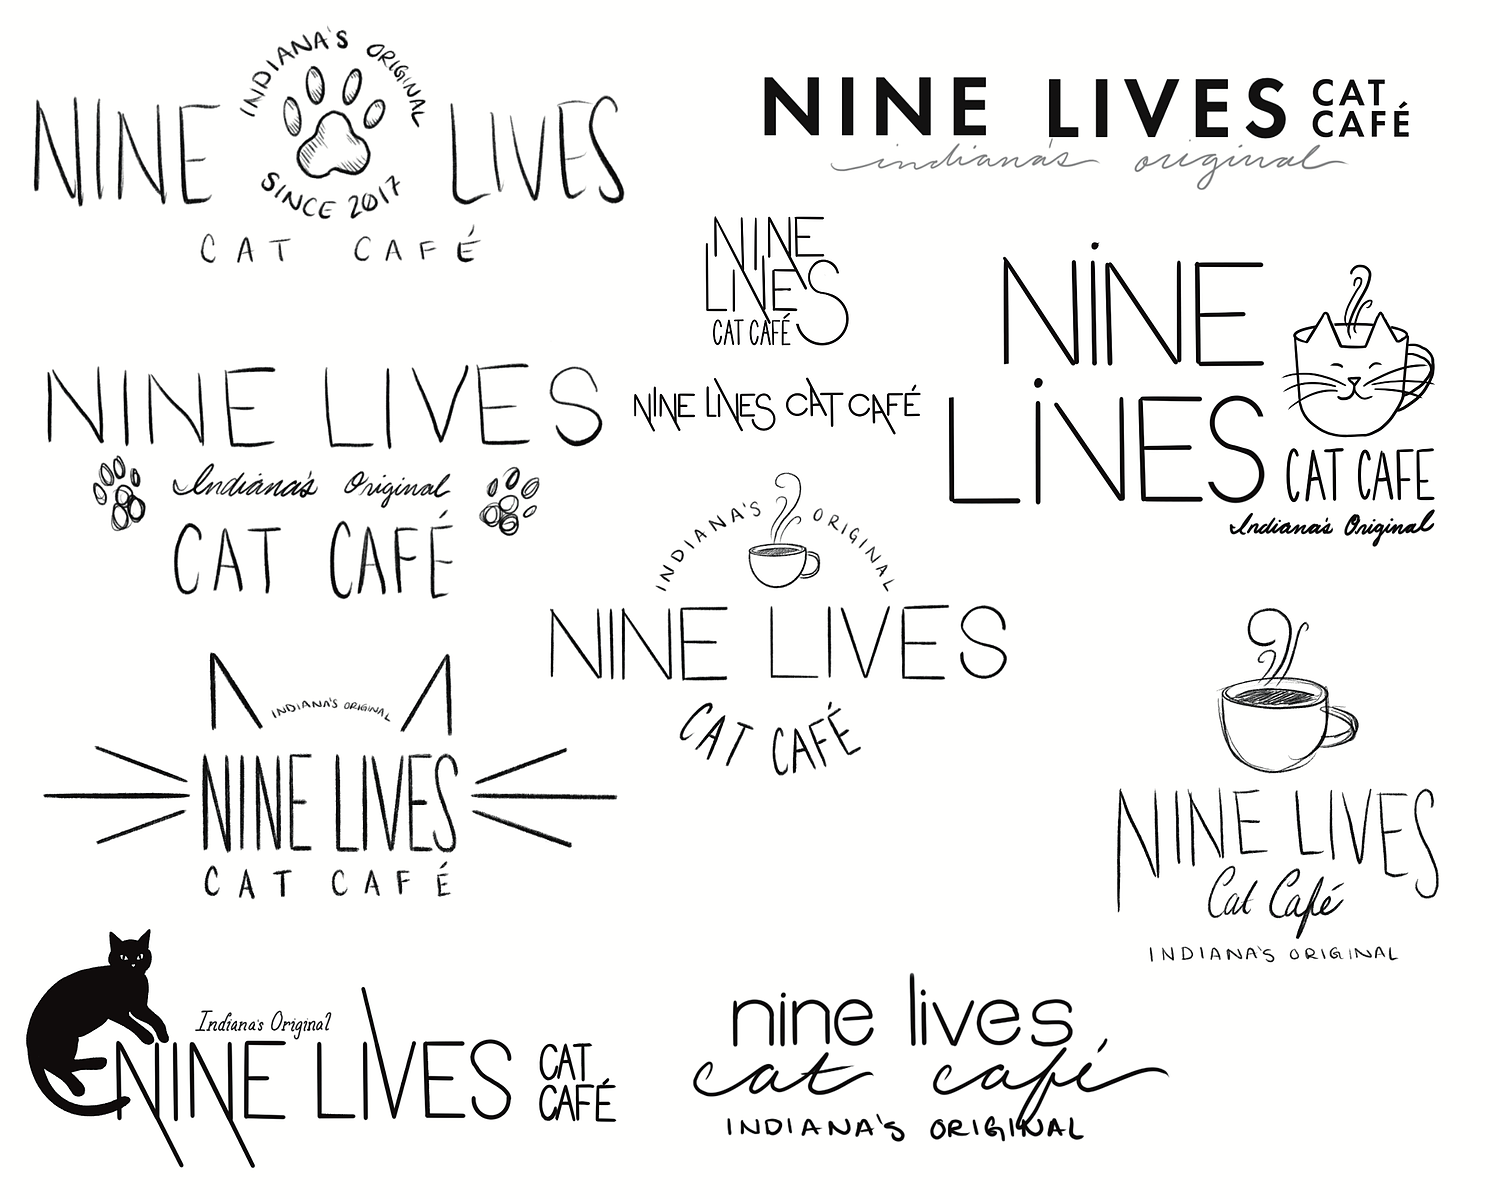 INDIANA'S ORIGINAL
NINE LIVES
SINCE 2017
CAT CAFÉ
NINE LIVES CAT CAFÉ
indiana's original
NINE
LIVES
CAT CAFÉ
NINE
LiVES
CAT CAFE
Indiana's Original
NINE LIVES
Indiana's Original
CAT CAFÉ
NINE LIVES CAT CAFÉ
INDIANA'S ORIGINAL
NINE LIVES
CAT CAFÉ
INDIANA'S ORIGINAL
NINE LIVES
CAT CAFÉ
NINE LIVES
Cat Café
INDIANA'S ORIGINAL
Indiana's Original
NINE LIVES
CAT
CAFÉ
nine lives
cat café
INDIANA'S ORIGINAL